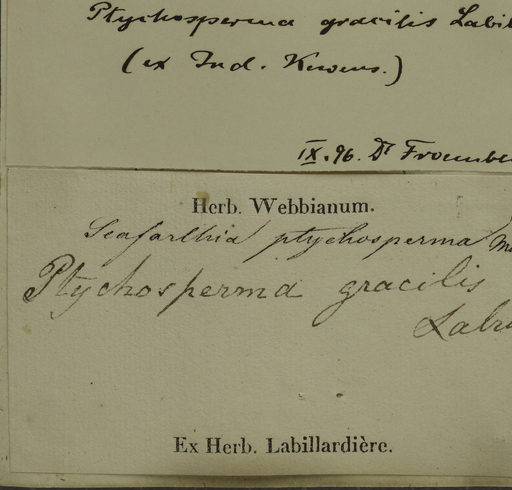 Ptychosperma gracilis Labil
(ex Ind. Kewens.)
IX.96. Dr Froembe
Herb. Webbianum.
Seaforthia ptychosperma M
Ptychosperma gracilis
Labi
Ex Herb. Labillardière.